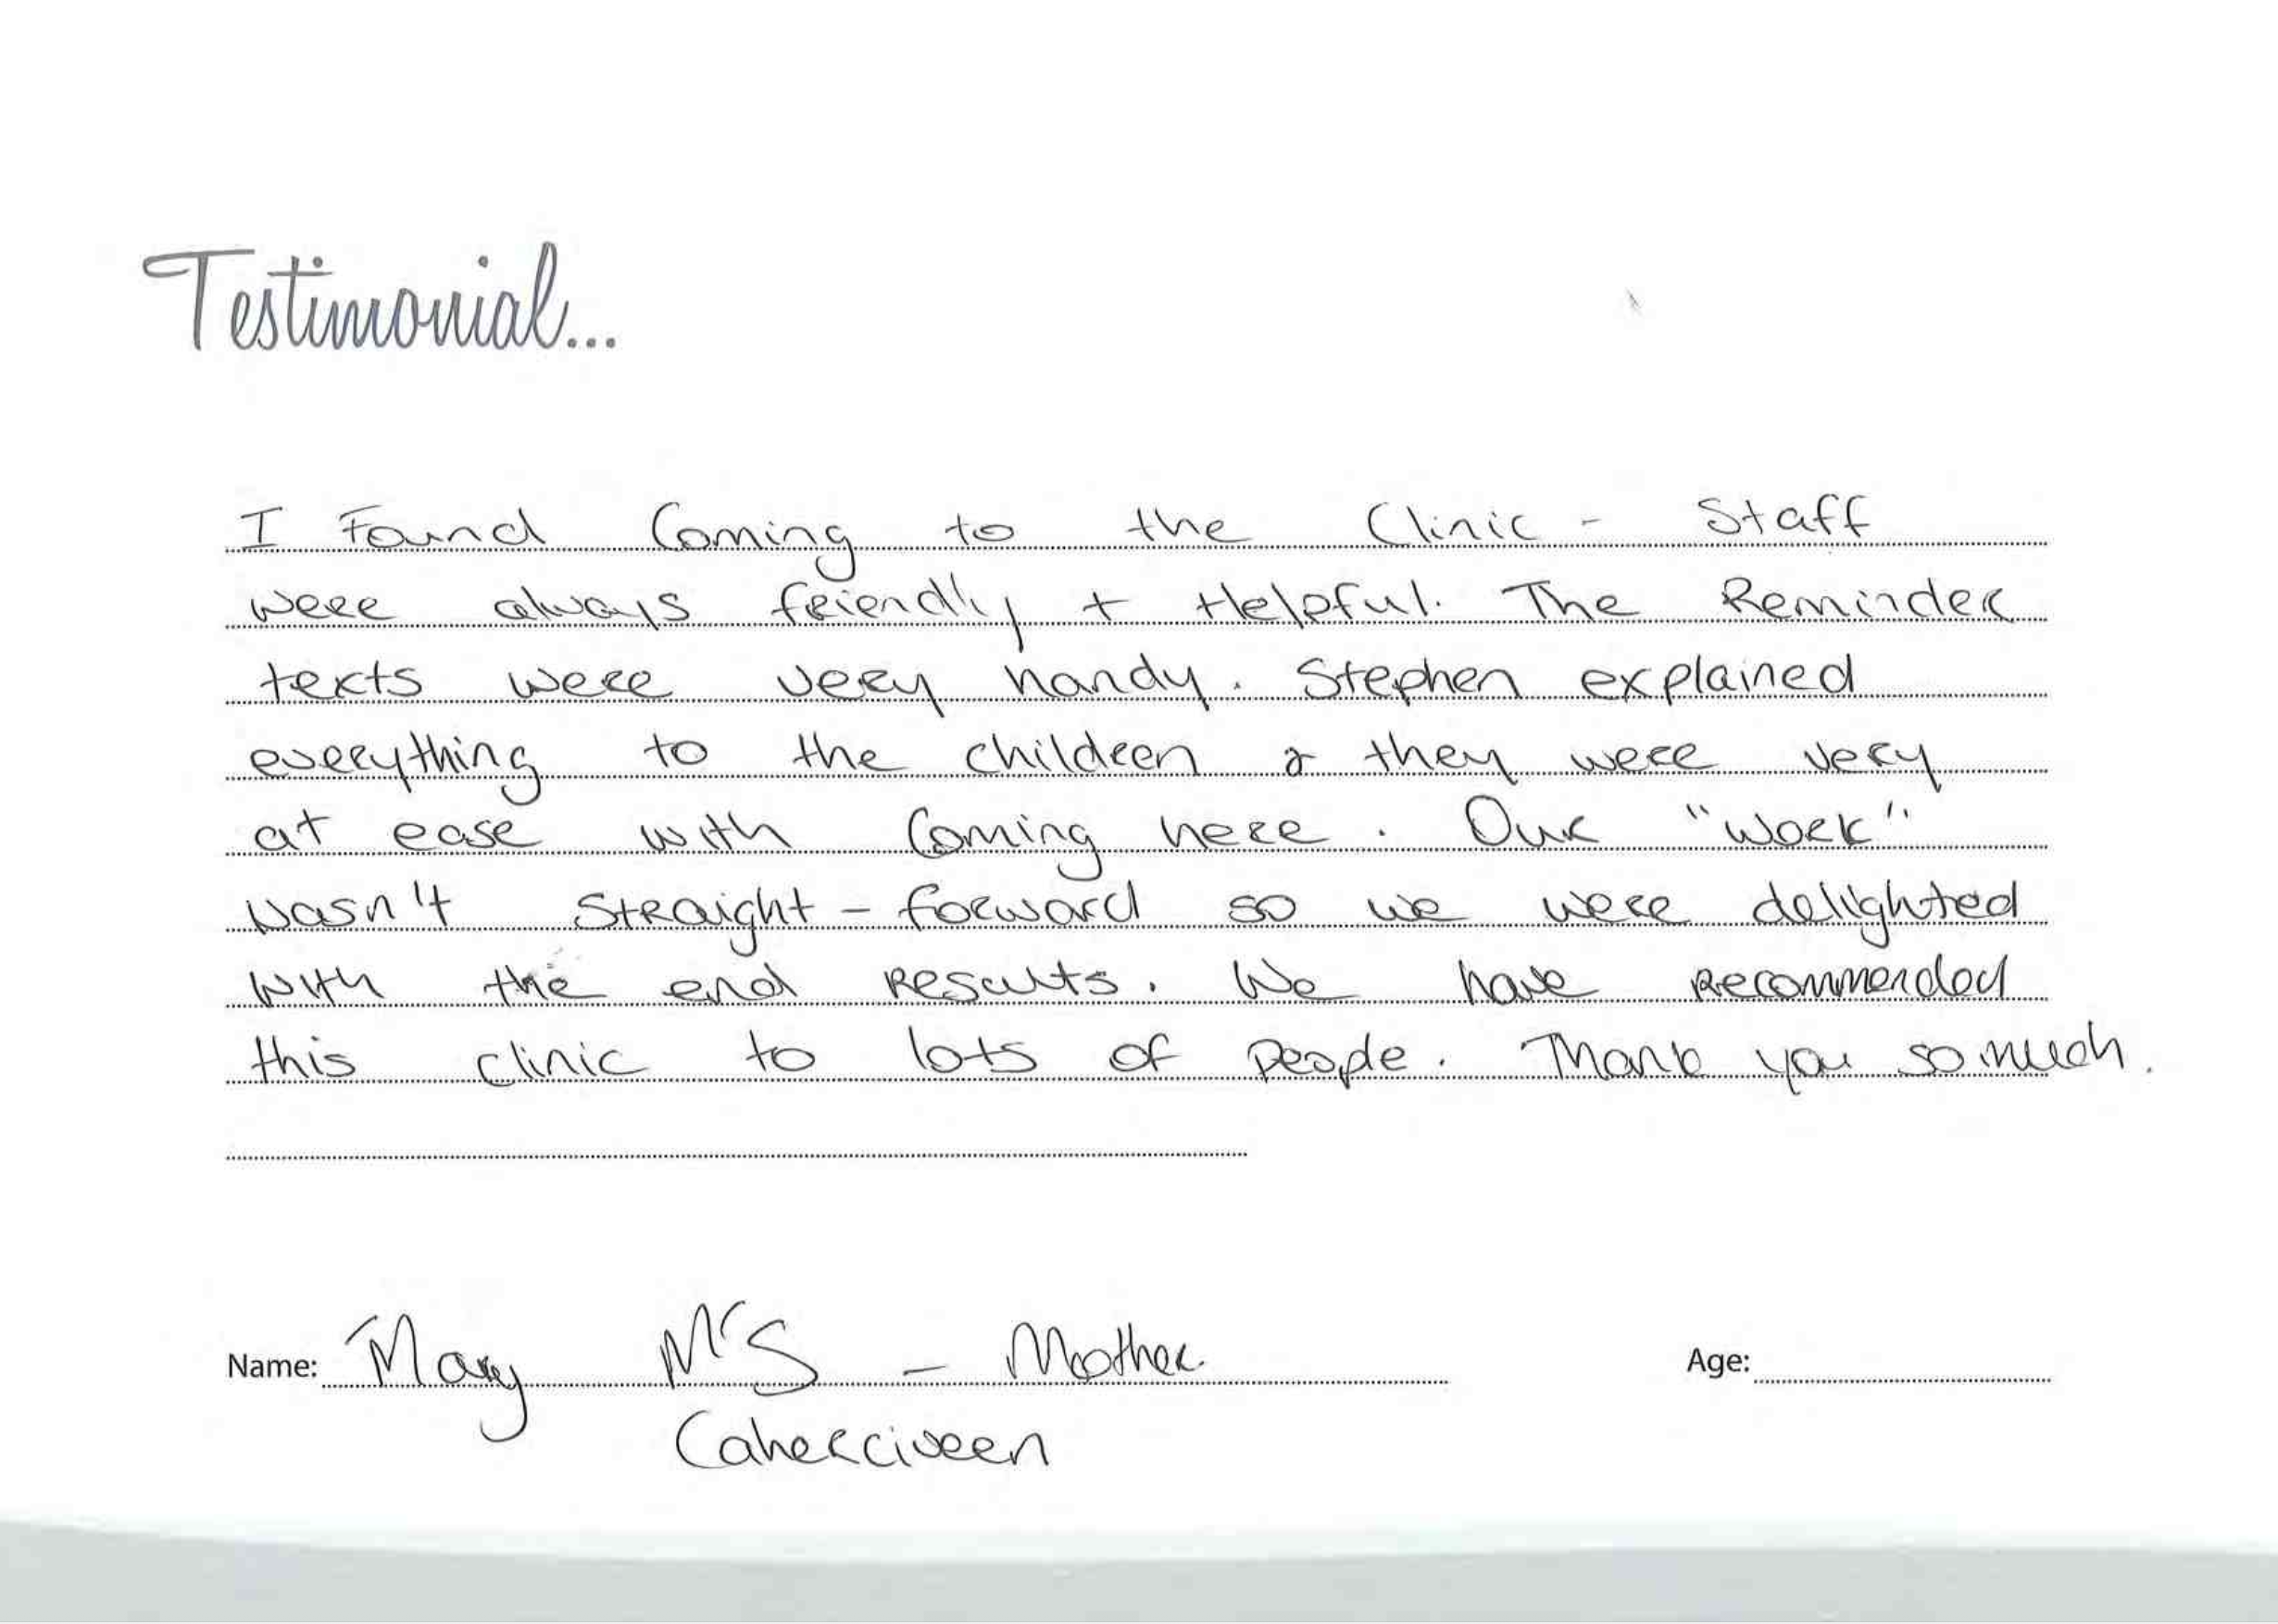 Testimonial...
I Found Coming to the Clinic - Staff
were always friendly + Helpful. The Reminder
texts were very handy. Stephen explained
everything to the children & they were very
at ease with Coming here. Our "work"
wasn't straight-forward so we were delighted
with the end results. We have recommended
this clinic to lots of people. Thank you so much.
Name: Mary Mc S - Mother.
Age:
Caherciveen